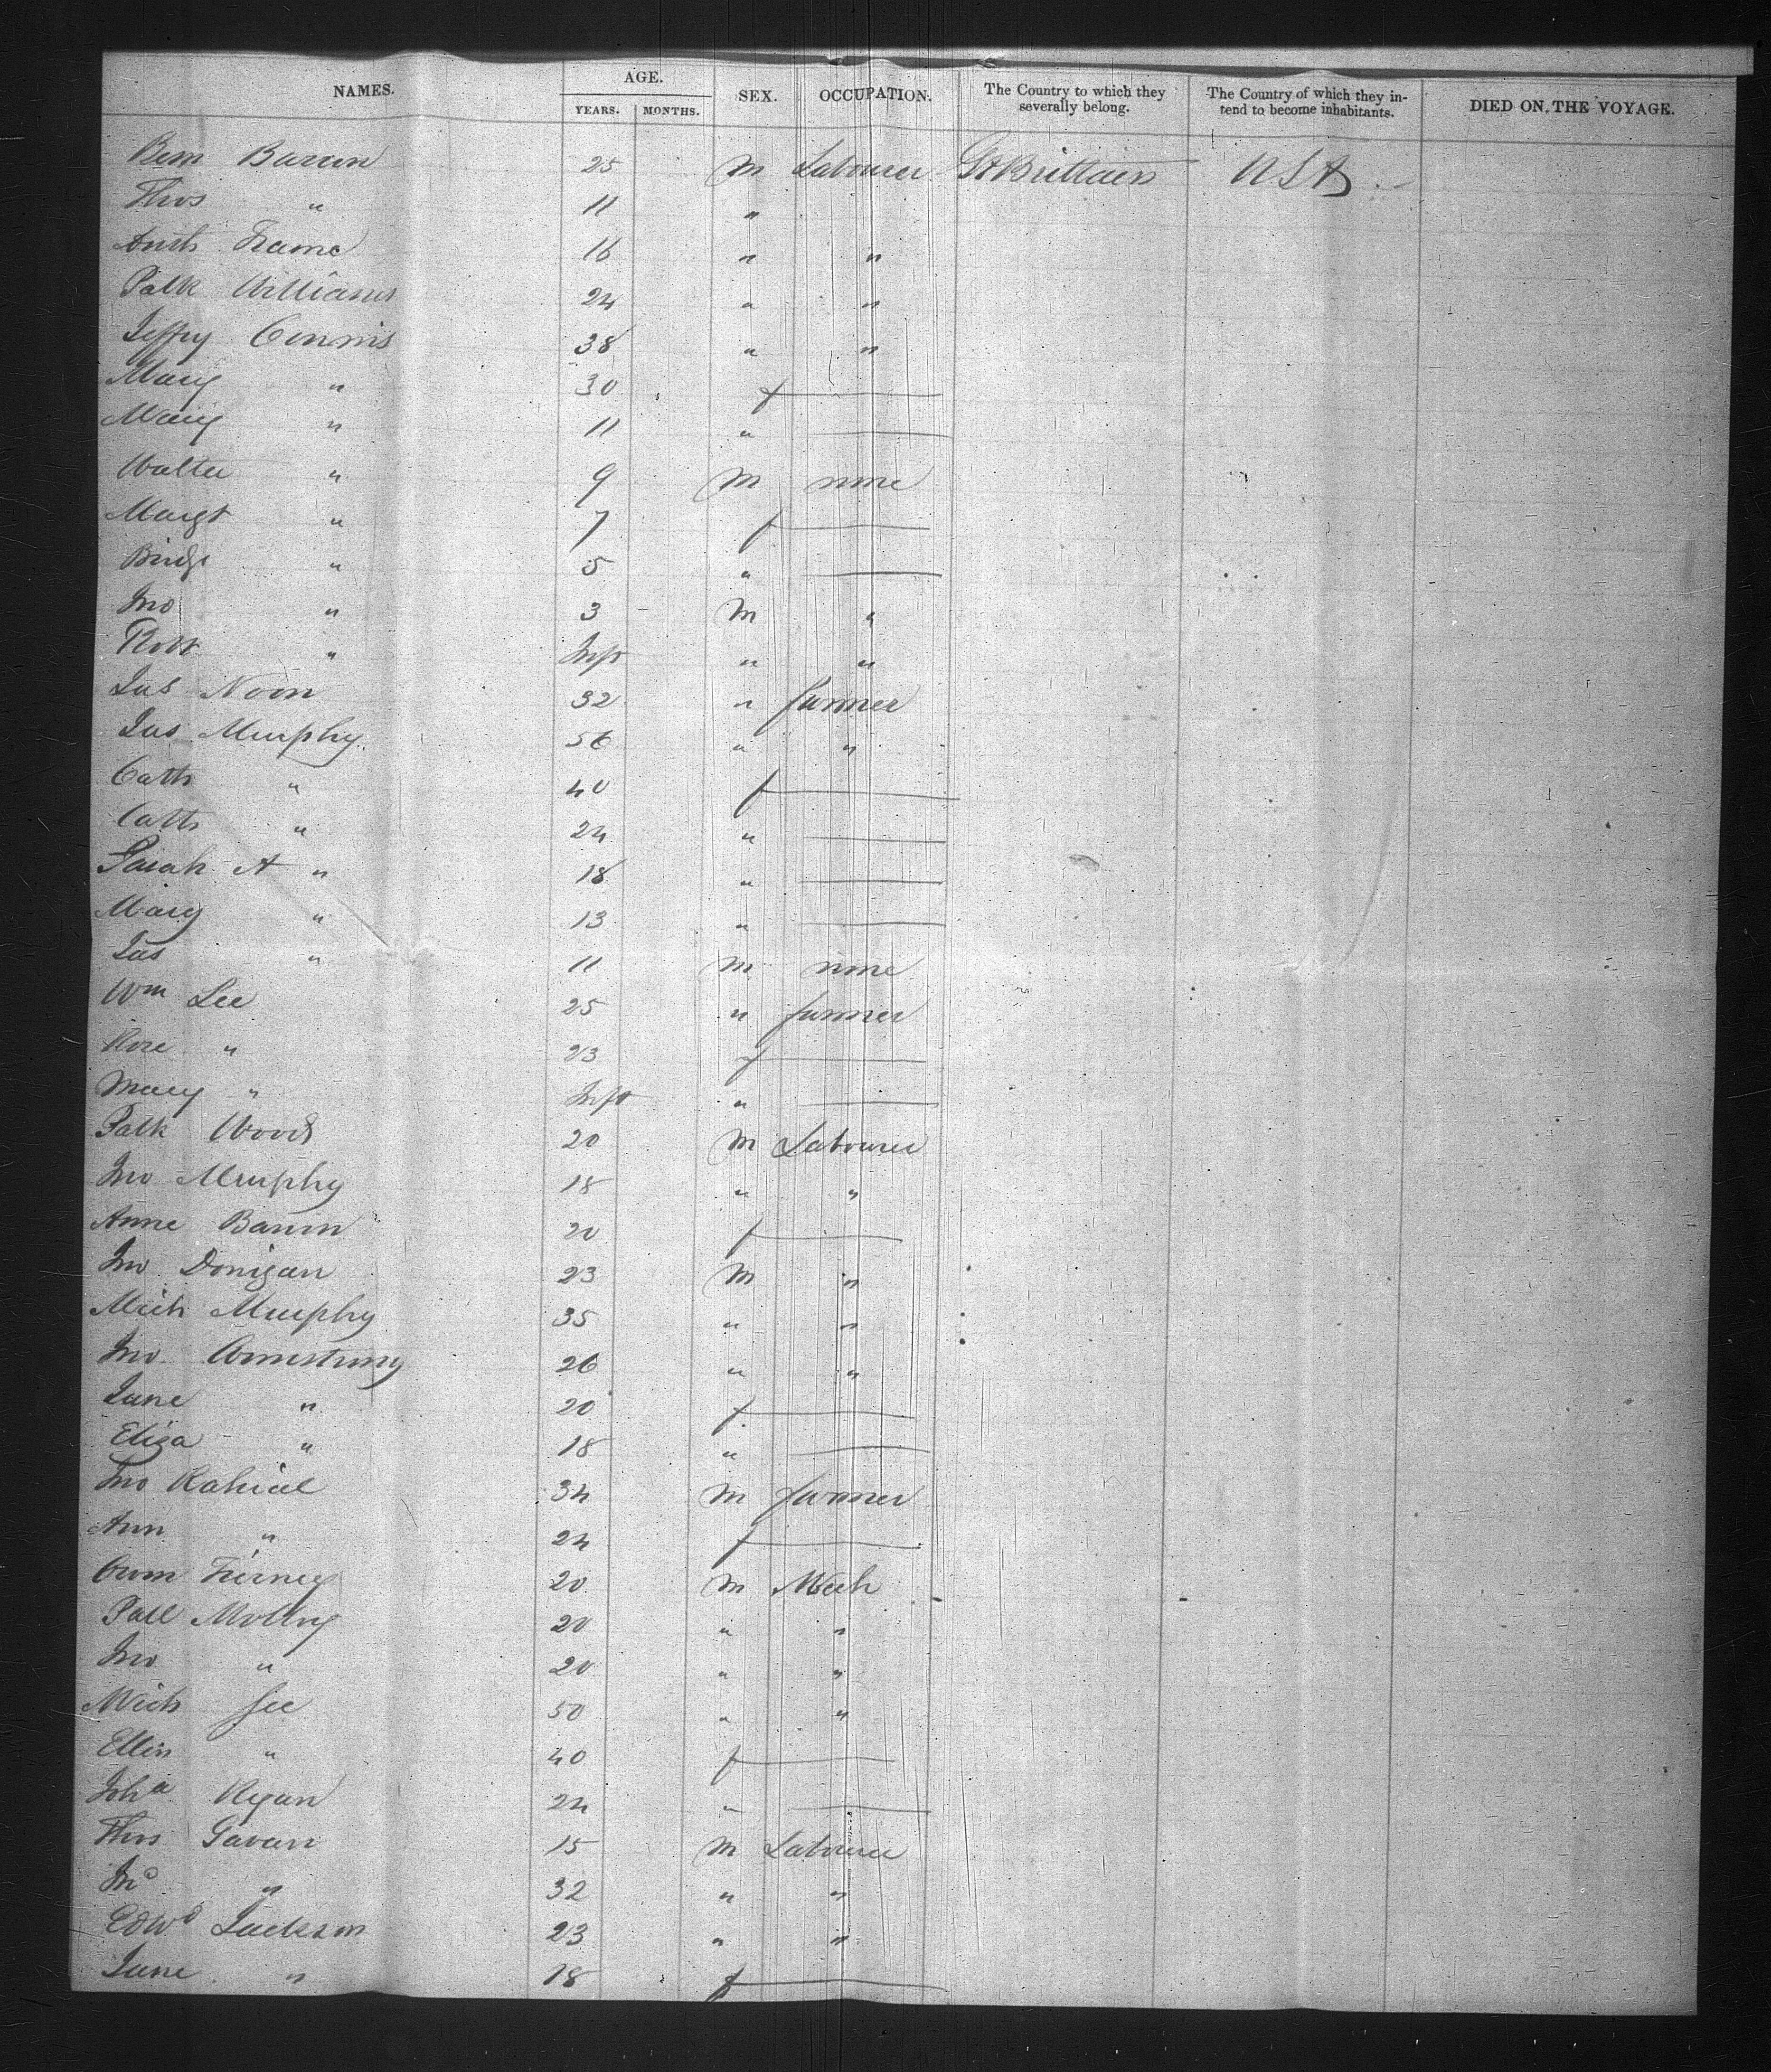 NAMES. AGE. SEX. OCCUPATION. The Country to which they severally belong. The Country of which they intend to become inhabitants. DIED ON THE VOYAGE.
YEARS. MONTHS.
Barron 25 m Labourer Gt Brittain USA
Thos " 11 "
16 " "
Patk Williams 24 " "
Jeffry 38 " "
Mary " 30 f
Mary " 11 "
Walter " 9 m none
Margt " 7 f
Bridgt " 5 "
Jno " 3 m "
Robt " Inft " "
Jas Noon 32 " farmer
Jas Murphy 56 " "
Cath " 40 f
Cath " 24 "
Sarah A " 18 "
Mary " 13 "
Jas " 11 m none
Wm Lee 25 " farmer
Rose " 23 f
Mary " Inft "
Patk Wood 20 m Labourer
Jno Murphy 18 " "
Anne Barron 20 f
Jno Donigan 23 m "
Mich Murphy 35 " "
Jno Armstrong 26 " "
Jane " 20 f
Eliza " 18 "
Jno 34 m farmer
Ann " 24 f
Owen Tierney 20 m Mech
Molloy 20 " "
Jno " 20 " "
Mich fee 50 " "
Ellen " 40 f
Joha Ryan 24 "
Thos Gavan 15 m Labourer
Jno " 32 " "
Edwd Jackson 23 " "
Jane " 18 f